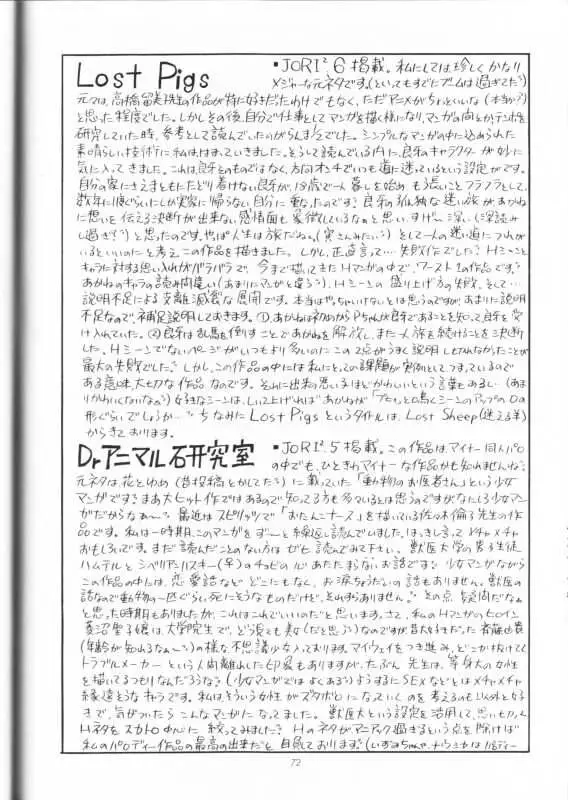 Lost Pigs
・JORI².6掲載。私にしては、珍しくかなり
メジャーな元ネタです。(といってもすでにブームは過ぎてたう)
元々は、高橋留美子先生の作品が特に好きだったわけでもなく、ただアニメがちょっといいな(本当か?)
と思った程度でした。しかしその後、自分で仕事としてマンガを描く様になり、マンガの間とか、テンポを
研究していた時、参考として読んでいたのがらんま½でした。シンプルなマンガの中に込められた
素晴らしい技術に私ははまっていきました。そうして読んでいる内に、良牙のキャラクターが妙に
気に入ってきました。これは、良牙そのものではなく、方向オンチでいつも道に迷っているという設定がです。
自分の家にさえまともにたどり着けない良牙が、18歳で一人暮しを始め もう長いことフラフラとして、
数年に1度ぐらいにしか実家に帰らない自分に重なったのです?良牙の孤独な迷い旅が、あかね
に想いを伝える決断が出来ない感情面も象徴しているなぁと思い、すげ〜深い(深読み
し過ぎ?)と思ったのです。やっぱ人生は旅だねぇ。(寅さんみたい?)そして一人の迷い道につれが
いるといいのにと考えこの作品を描きました。しかし、正直言って…失敗作でした?Hシーンと
キャラに対する思い入れがバラバラで、今まで描いてきたHマンガの中で、ワースト1の作品です。
あかねのキャラの読み間違い(あまりにマンガと違う)、Hシーンの盛り上げ方の失敗、そして…
説明不足による支離滅裂な展開です。本当はやっちゃいけないとは思うのですが、あまりに説明
不足なので、補足説明しておきます。①、あかねは初めからPちゃんが良牙であることを知って良牙を受
け入れていた。②良牙は乱馬を倒すことであかねを解放し、また一人旅を続けることを決断
した。Hシーンでないページがいつもより多いのにこの2点がうまく説明しきれなかったことが
最大の失敗でした?しかし、この作品の中には私にとっての課題が実例としてつまっているので
ある意味、大切な作品なのです。それに出来の悪い子ほどかわいいという言葉もあるし…(あま
りかわいくないなぁ)好きなシーンは、しいて上げればあかねが
形ぐらいでしょうか。ちなみにLost Pigsというタイトルは、Lost Sheep(迷える羊)
からきております。
Drアニマル石研究室
・JORI².5掲載。この作品は、マイナー同人パロ
の中でも、ひときわマイナーな作品かも知れませんね。
元ネタは、花とゆめ(昔投稿とかしてたう)に載っていた「動物のお医者さん」という少女
マンガです?まあ大ヒット作ではあるので知ってる方も多でいるとは思うのですがなにしろ少女マン
ガだからなぁ〜 最近はスピリッツで「おたんこナース」を描いている佐々木倫子先生の作
品です。私は一時期、このマンガをず〜と繰返し読んでいました。はっきし言ってメチャメチャ
おもしろいです。まだ読んだことのない方はぜひ読んでみて下さい。獣医大学の男子生徒
ハムテルとシベリアンハスキー(♀)のチョビの心あたたまらないお話です?少女マンガながら
この作品の中には、恋愛話などどこにもなく、お涙ちょうだいの話もありません。獣医の
話なので動物の一匹ぐらい死にそうなものだけど、それすらありません。その点、疑問だなぁ
と思った時期もありましたが、これはこれでいいのだと思います。さて、私のHマンガのヒロイン
菱沼聖子嬢は、大学院生で、どう見ても美女(だと思う)なのですが昔大好きだった斉藤由貴
(年齢が知れるなぁ〜)の様な不思議少女入っております。マイウェイをつき進み、どこか抜けてて
トラブルメーカーという人間離れした印象もありますが、たぶん先生は、等身大の女性
を描いてるつもりなんだろうなぁ?(少女マンガではよくある)ようするにSEXなどとはメチャメチャ
縁遠そうなキャラです。私はそういう女性がズタボロになっていくのを考えるのも以外と好
きで、気がついたらこんなマンガになってました。獣医大という設定を活用して、思い切って
HネタをスカトロONLYに絞ってみました?Hのネタがマニアック過ぎるという点を除けば
私のパロディー作品の最高の出来だと自負しております?(いずみちゃんやナウシカはパロディー
72